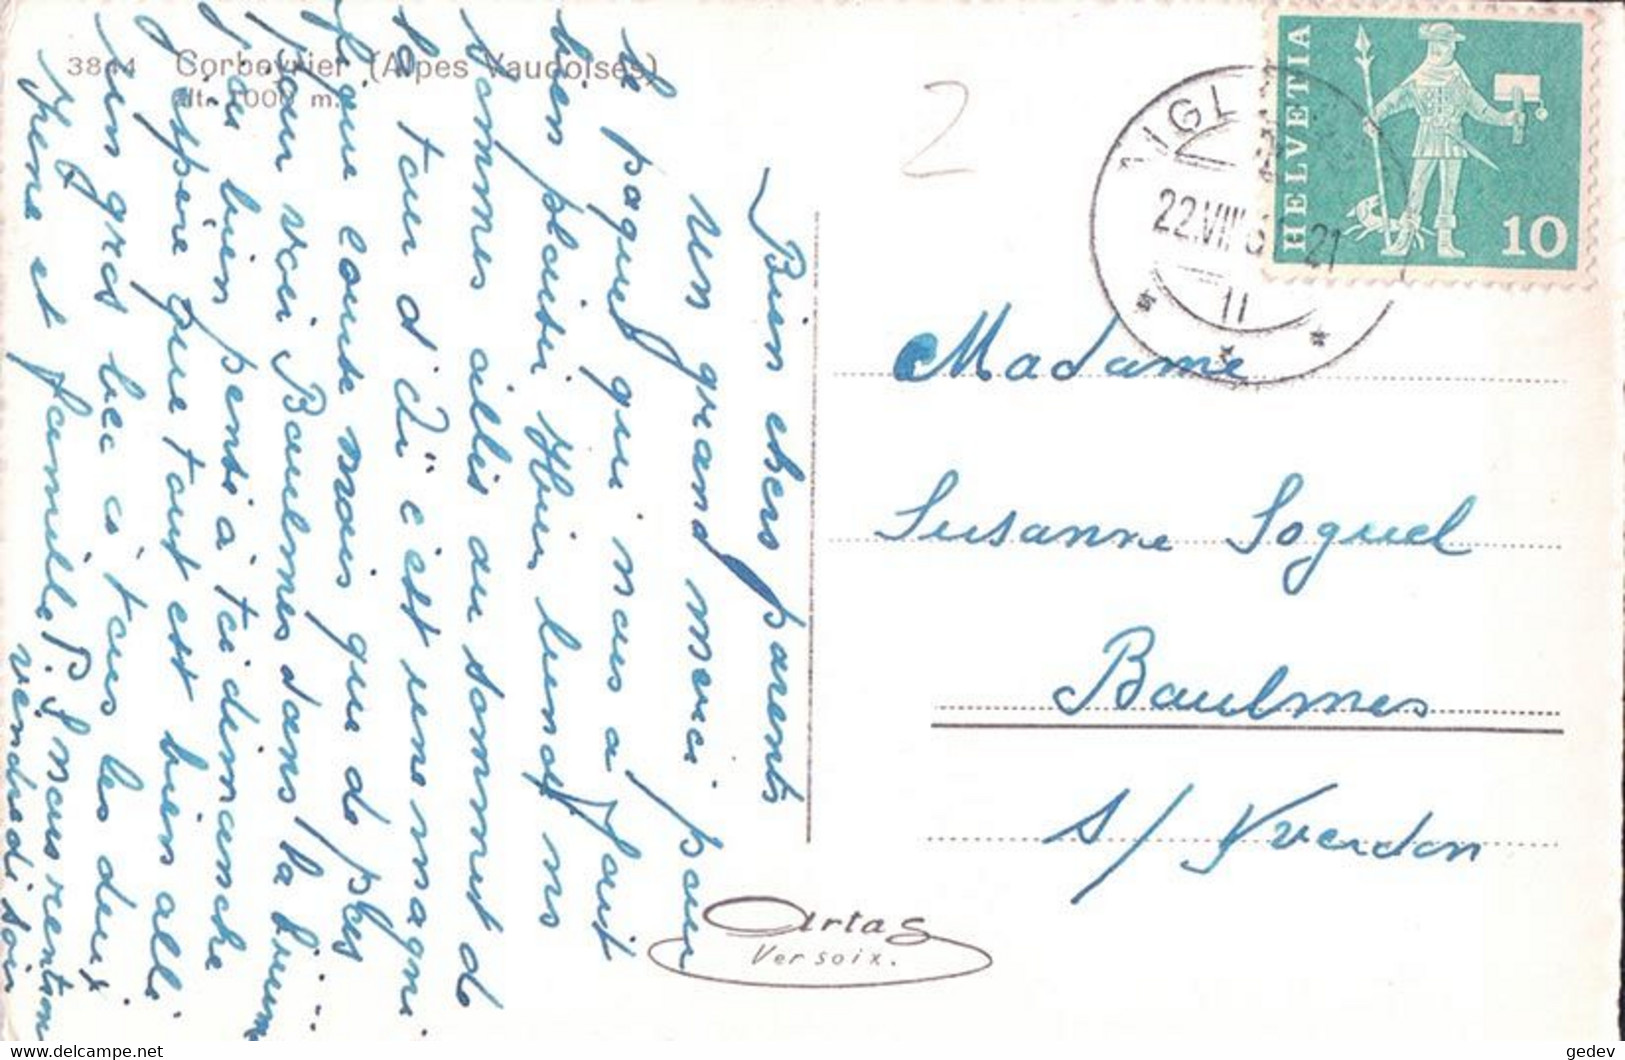 3844 Corbeyrier (Alpes Vaudoises)
alt. 1000 m.
Bien chers parents
Un grand merci pour
le paquet qui nous a fait
bien plaisir Hier lundi ns
sommes allés au sommet de
la tour d'Aï c'est une magni
fique course mais que de pless
pour voir Baulmes dans la brume
J'ai bien pensé à toi dimanche
j'espère que tout est bien allé
un gros bec à tous les deux
Irène et famille P.S nous rentrons
vendredi soir
2
AIGL
22.VIII 6 21
11
HELVETIA
10
Madame
Susanne Soguel
Baulmes
s/ Yverdon
Artas
Versoix.
gedev